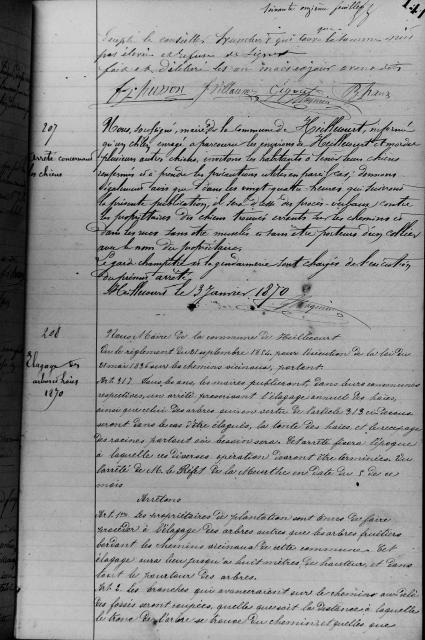 soixante onzième feuillet
141
excepté le conseiller Hanchin qui trouve la somme
pas élevée et refuse de signer
fait et délibéré les an mois et jour avant dits
207
Arrêté concernant
les chiens
Nous, soussigné, maire de la commune de Heillecourt, informé
qu'un chien enragé a parcouru les environs de Heillecourt et mordu
plusieurs autres chiens, invitons les habitants à tenir leurs chiens
enfermés et à prendre les précautions utiles en pareil cas, donnons
également avis que dans les vingt quatre heures qui suivront
la présente publication, il sera dressé des procès-verbaux contre
les propriétaires des chiens trouvés errants sur les chemins et
dans les rues sans être muselés et sans être porteurs d'un collier
avec le nom du propriétaire.
Le garde champêtre et la gendarmerie sont chargés de l'exécution
du présent arrêté.
A Heillecourt le 3 Janvier 1870
208
Elagage des
arbres et haies
1870
Nous Maire de la commune de Heillecourt
Vu le règlement du 21 septembre 1854 pour l'exécution de la loi du
21 mai 1836 sur les chemins vicinaux, portant:
Art. 317. Tous les ans, les maires publieront, dans leurs communes
respectives, un arrêté prescrivant l'élagage annuel des haies,
ainsi que celui des arbres qui en vertu de l'article 313 ci-dessus
seront dans le cas d'être élagués, la tonte des haies et le recepage
des racines partout où besoin sera. Cet arrêté fixera l'époque
à laquelle ces diverses opérations devront être terminées. Vu
l'arrêté de M. le Préfet de la Meurthe en date du 5 de ce
mois
Arrêtons
Art. 1er. Les propriétaires de plantation sont tenus de faire
procéder à l'élagage des arbres autres que les arbres fruitiers
bordant les chemins vicinaux de cette commune. Cet
élagage aura lieu jusqu'à huit mètres de hauteur, et dans
tout le pourtour des arbres.
Art. 2. Les branches qui avanceraient sur le chemin au delà
des fossés seront coupées, quelle que soit la distance à laquelle
le tronc de l'arbre se trouve du chemin et quelle que